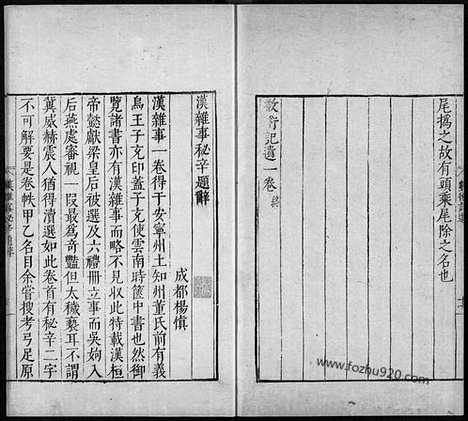 尾撝之故有頭乘尾除之名也
數術記遺一卷終
漢雜事秘辛題辭
成都楊慎
漢雜事一卷得于安寧州土知州董氏前有義
烏王子充印蓋子充使雲南時篋中書也然御
覽諸書亦有漢雜事而略不見收此特載漢桓
帝懿獻梁皇后被選及六禮冊立事而吳姁入
后燕處審視一叚最爲奇豔但太穢褻耳不謂
冀威赫震人猶得瀆選如此卷首有秘辛二字
不可解要是卷帙甲乙名目余嘗搜考弓足原
www.fozhu920.com